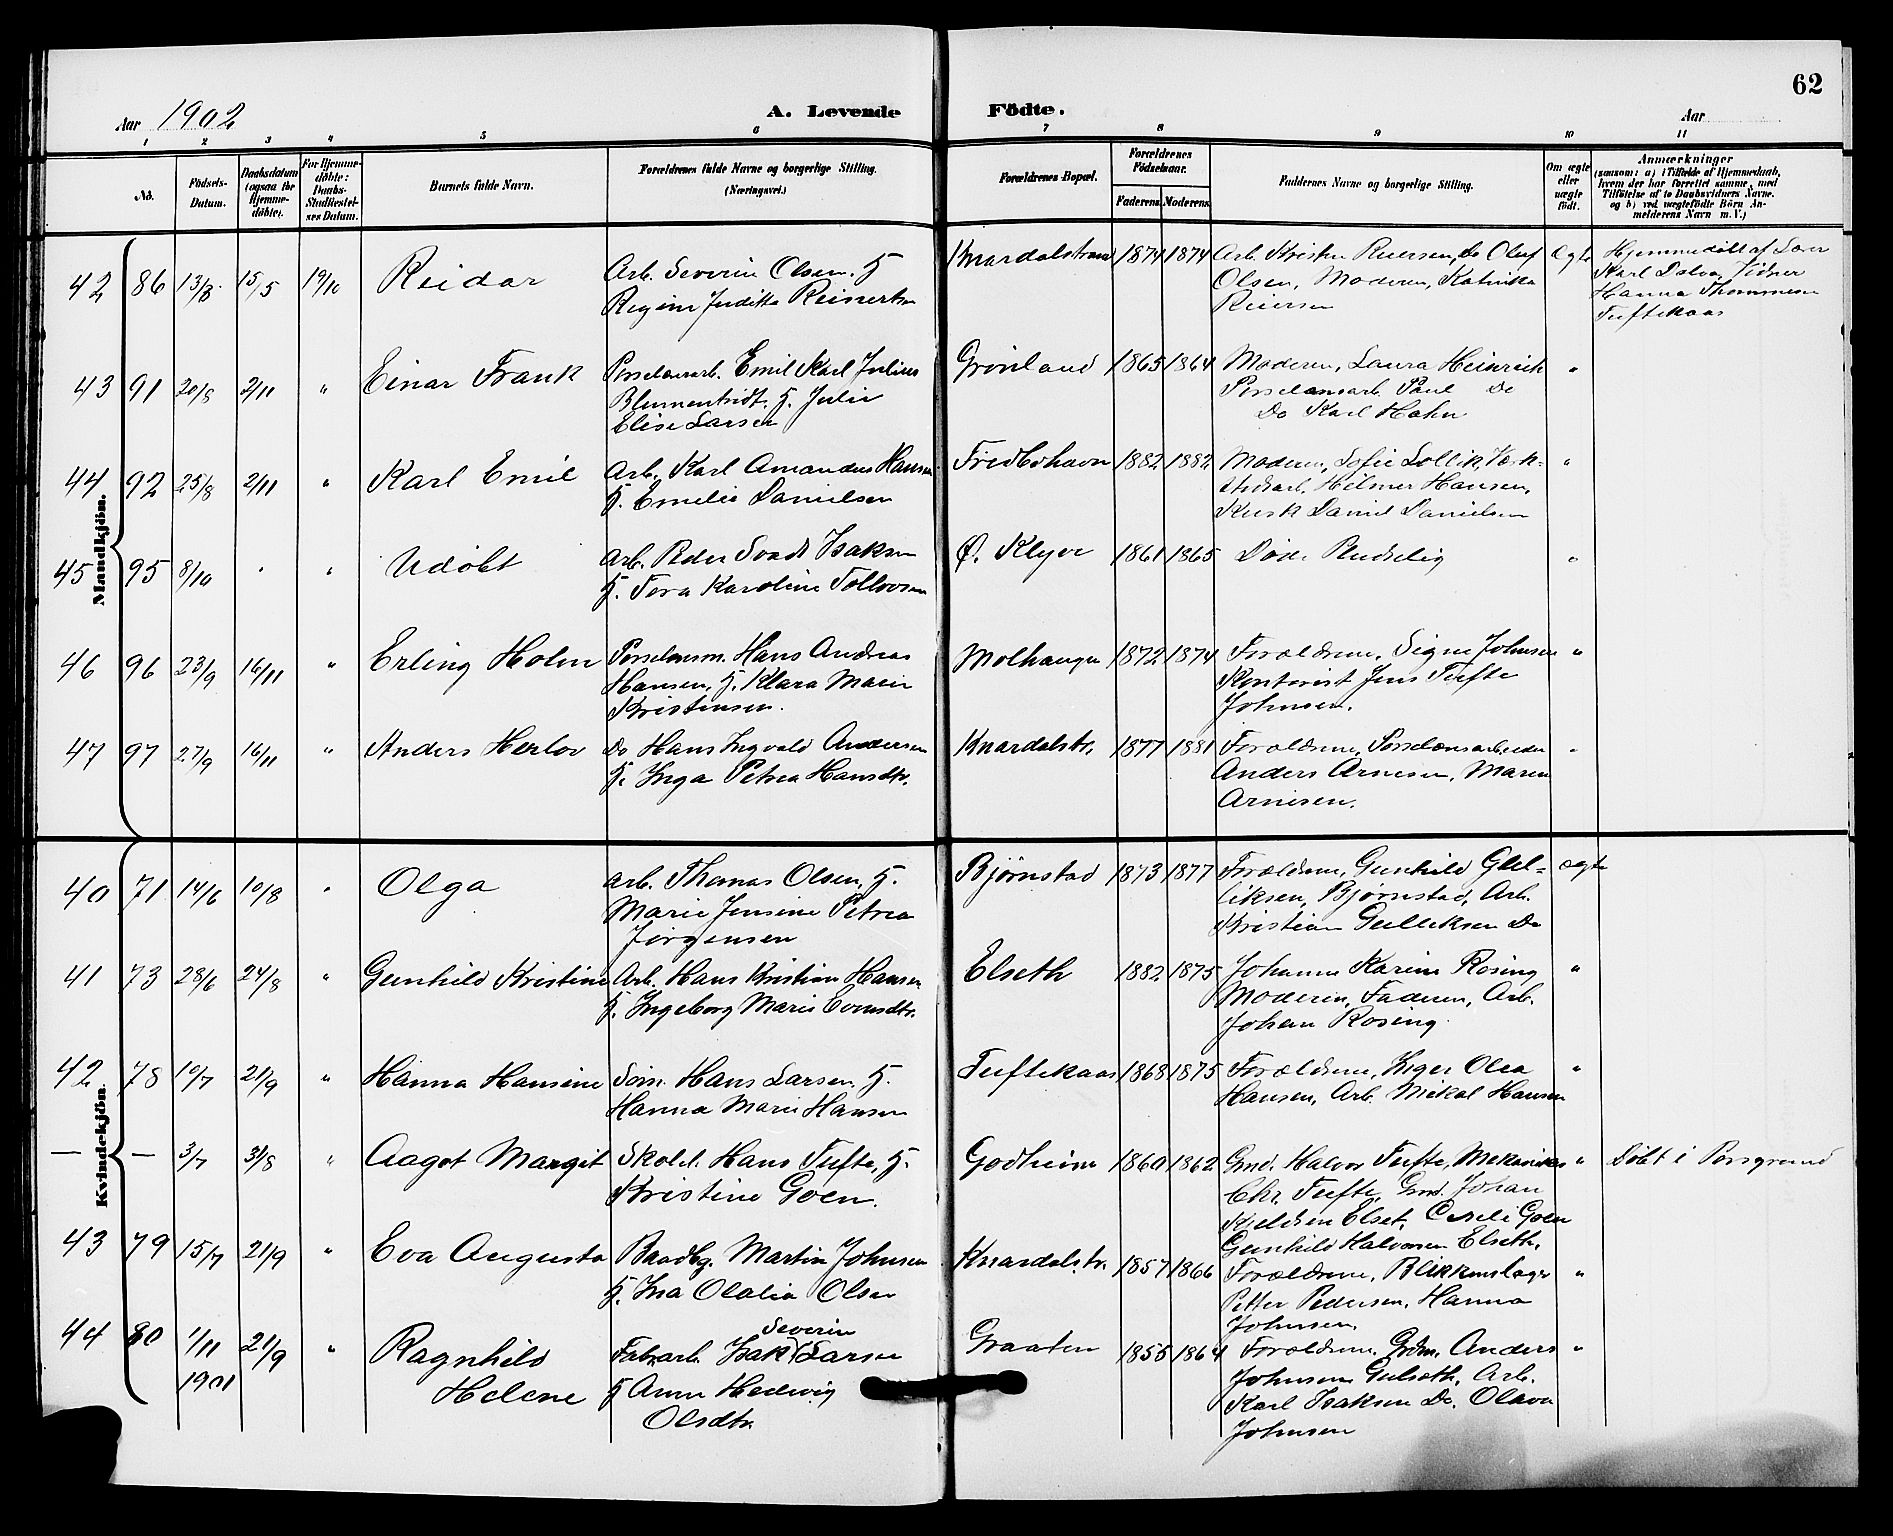 62
Aar 1902 A. Levende Födte. Aar
1 2 3 4 5 6 7 8 9 10 11
No. Födsels-Datum. Daabsdatum (ogsaa for Hjemme-döbte). For Hjemme-döbte: Daabs-Stadfæstel-ses Datum. Barnets fulde Navn. Forældrenes fulde Navne og borgerlige Stilling. (Næringsvei.) Forældrenes Bopæl. Forældrenes Födselsaar. Faderens. Moderens. Faddernes Navne og borgerlige Stilling. Om ægte eller uægte födt. Anmærkninger (saasom: a) i Tilfælde af Hjemmedaab, hvem der har forrettet samme, med Tilföielse af to Daabsvidners Navne, og b) ved uægtefödte Börn An-melderens Navn m. V.)
Mandkjön.
42 86 13/8 15/5 19/10 Reidar Arb. Severin Olsen. H. Knardalstrand 1874 1874 Arb. Kristen Reiersen, Do Oluf Ægte Hjemmedøbt af Lærer
Regine Juditha Reinertsen Olsen, Moderen, Katinka Karl Dalva, Vidner
Reiersen Hanna Thommesen
Tuftekaas
43 91 20/8 2/11 " Einar Frank Porselænarb. Emil Karl Julius Grønland 1865 1864 Moderen, Laura Heinrich "
Blumentridt. H. Julie Porselænsarb. Paul Do
Elise Larsen Do Karl Hahn
44 92 25/8 2/11 " Karl Emil Arb. Karl Amandus Hansen Fredbohavn 1882 1882 Moderen, Sofie Sollik, Værk- "
H. Emelie Danielsen stedsarb. Hilmer Hansen,
Kusk Daniel Danielsen
45 95 8/10 . " Udøbt Arb. Peder Isaksen Ø. Klyve 1861 1865 Døde Pludselig "
H. Tora Karoline Tollovsen
46 96 23/9 16/11 " Erling Holm Porselensm. Hans Andreas Molhaugen 1872 1874 Forældrene, Signe Johnsen "
Hansen, H. Klara Marie Kontorist Jens Tufte
Kristensen. Johnsen.
47 97 27/9 16/11 " Anders Herlov Do Hans Ingvald Andersen Knardalstr. 1877 1881 Forældrene, Porselænsarbeider "
H. Inga Petrea Hansdtr. Anders Arnesen, Maren
Arnesen.
Kvindekjön.
40 71 14/6 10/8 " Olga Arb. Thomas Olsen, H. Bjørnstad 1873 1877 Forældrene, Gunhild Gul- ægte
Marie Jensine Petrea liksen, Bjørnstad, Arb.
Jørgensen Kristian Gulliksen Do
41 73 28/6 24/8 " Gunhild Kristine Arb. Hans Kristian Hansen Elseth 1882 1875 Johanne Karine Rosing "
H. Ingeborg Marie Evensdtr. Moderen, Faderen, Arb.
Johan Rosing.
42 78 10/7 21/9 " Hanna Hansine Søm. Hans Larsen, H. Tuftekaas 1868 1875 Forældrene, Inger Olea "
Hanna Marie Hansen Hansen, Arb. Mikal Hansen
— — 3/7 31/8 " Aagot Margit Skolel. Hans Tufte, H. Godheim 1860 1862 Grnd. Halvor Tufte, Mekanikus " Døbt i Porsgrund
Kristine Goen. Chr. Tufte, Grnd. Johan
Kjeldsen Elset, Goen
Gunhild Halvorsen Elseth.
43 79 15/7 21/9 " Eva Augusta Baadbg. Martin Johnsen Knardalstr. 1857 1866 Forældrene, Blikkenslager "
H. Ina Olalia Olsen Petter Pedersen, Hanna
Johnsen.
44 80 1/11 21/9 " Ragnhild Fabrarb. Isak Severin Larsen Graaten 1855 1864 Forældrene. Grdm. Anders "
1901 Helene H Anne Hedevig Johnsen Gulseth, Arb.
Olsdtr. Karl Isaksen Do. Olava
Johnsen